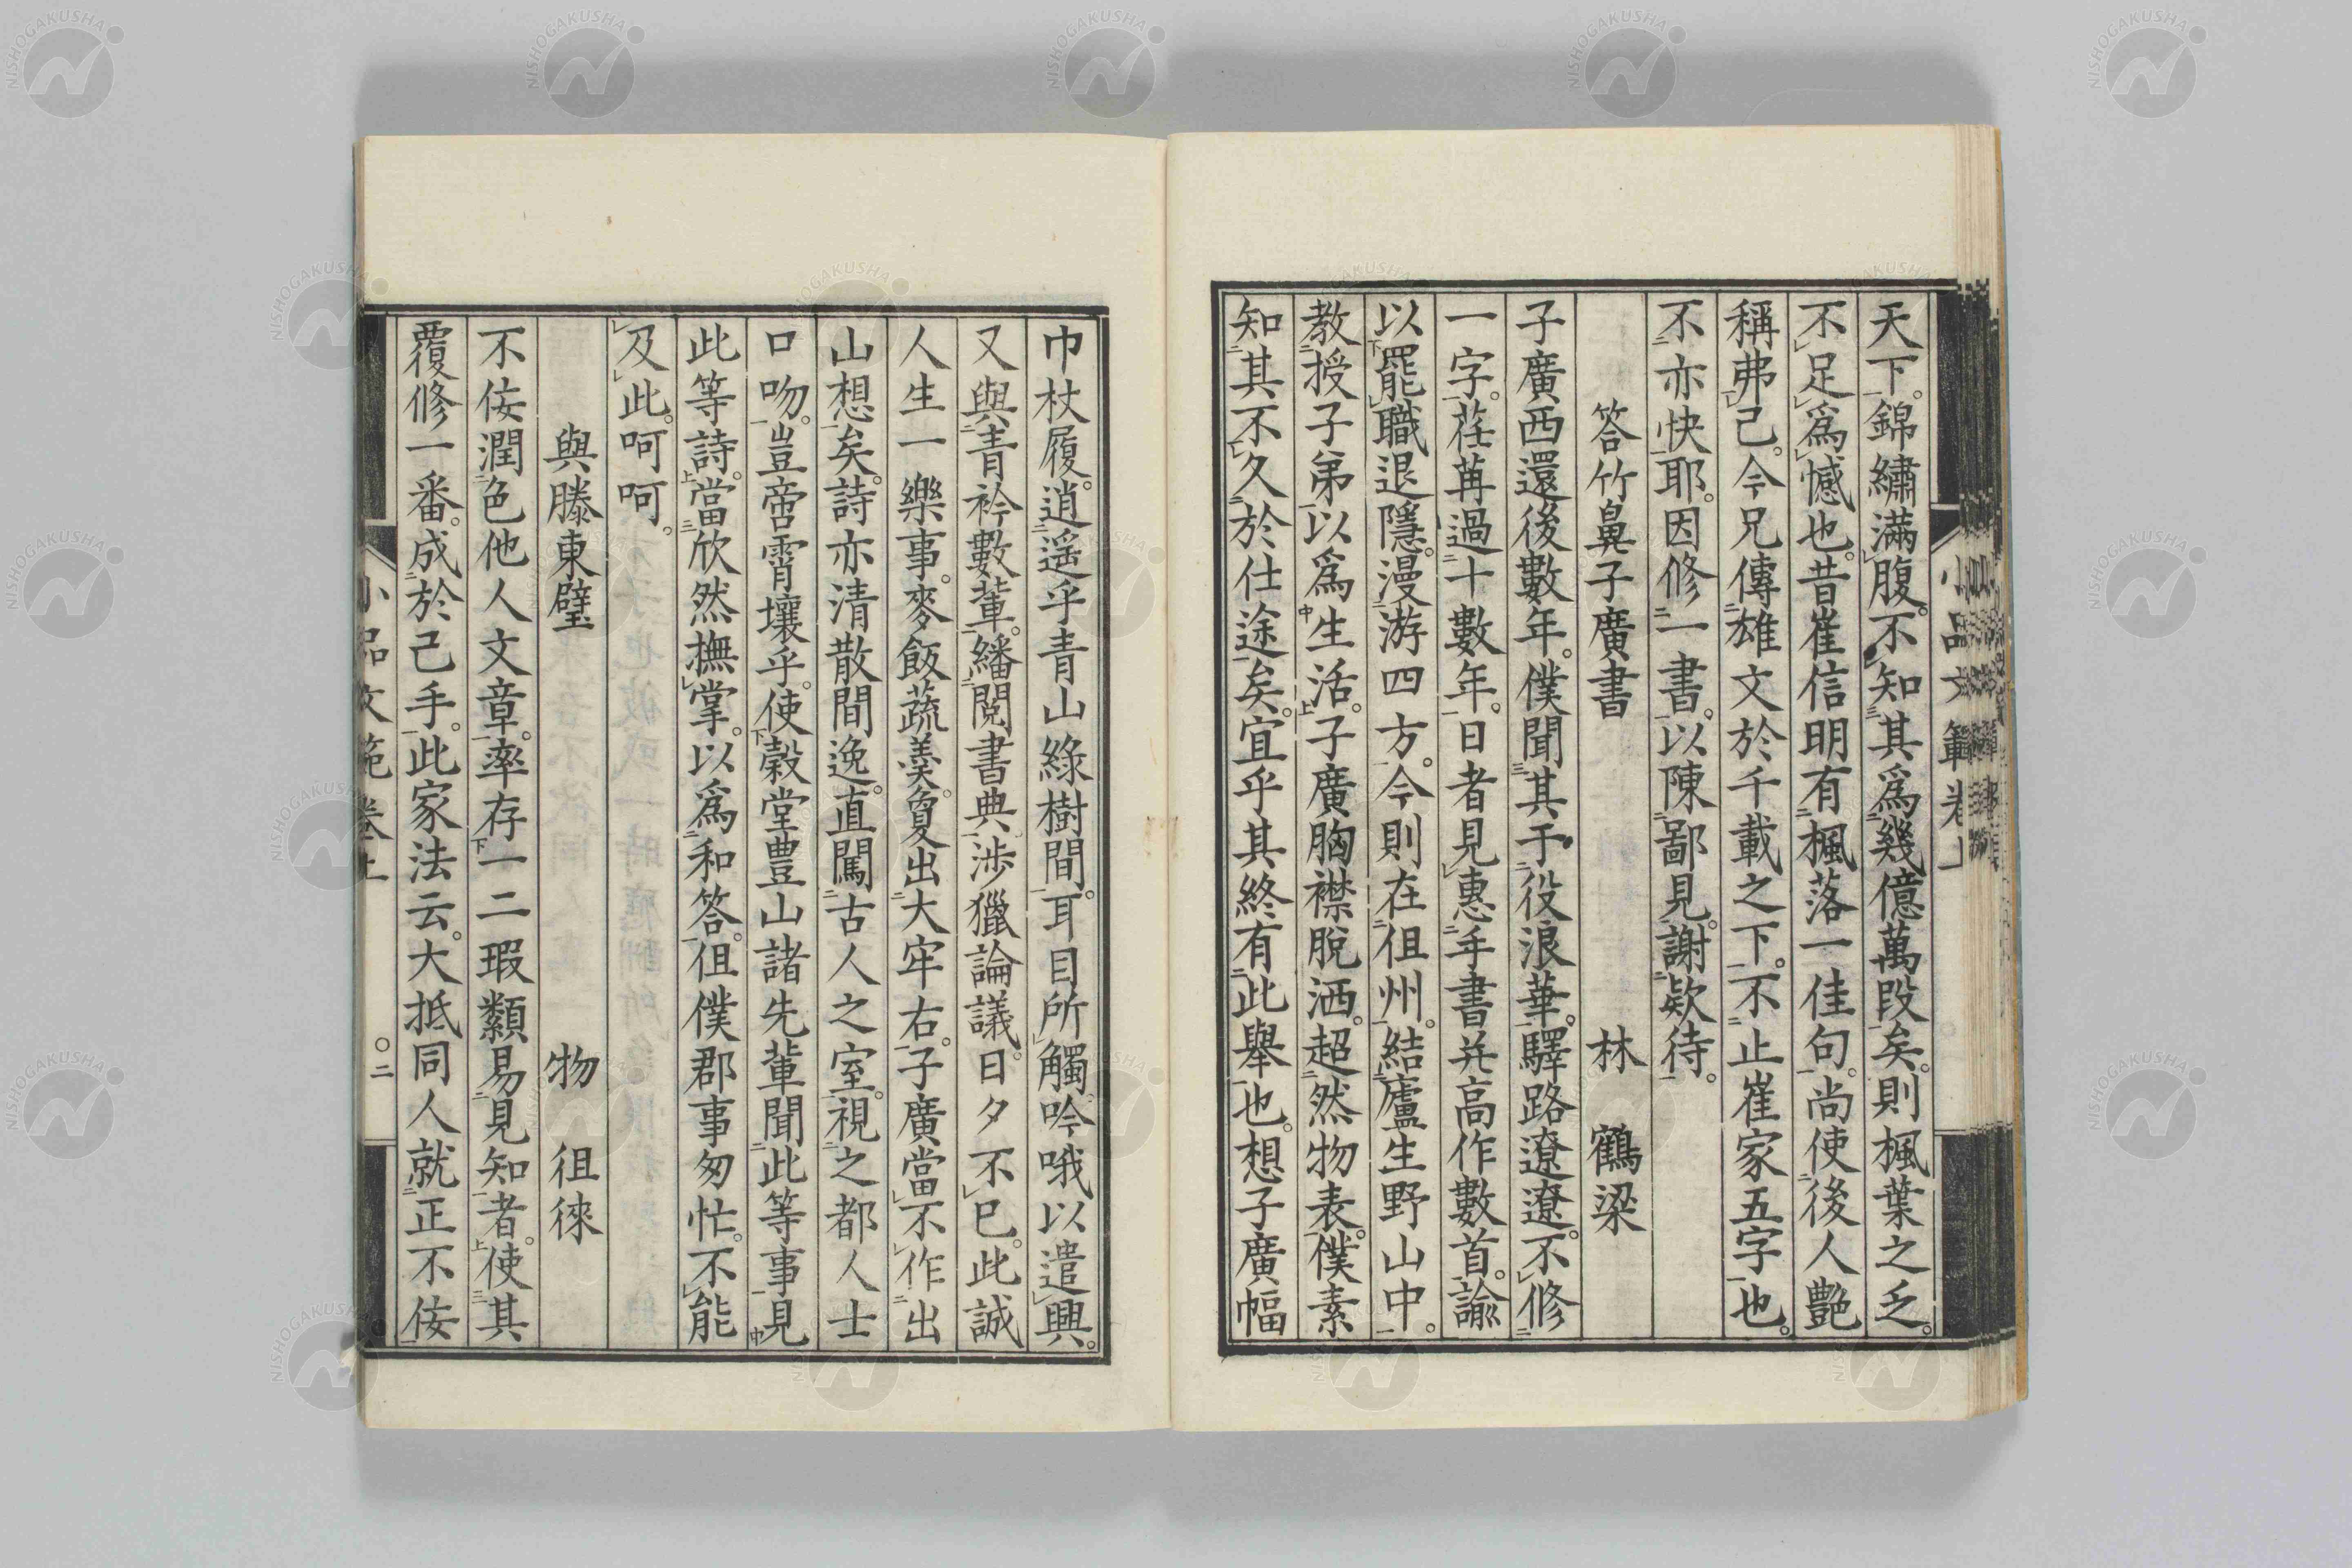 天下。錦繡滿腹。不知其爲幾億萬段矣。則楓葉之乏。
不足爲憾也。昔崔信明有楓落一佳句。尚使後人艷
稱弗已。今兄傳雄文於千載之下。不止崔家五字也。
不亦快耶。因修一書。以陳鄙見。謝欵待。
答竹鼻子廣書 林 鶴梁
子廣西還後數年。僕聞其于役浪華。驛路遼遼。不修
一字。荏苒過十數年。日者見惠手書并高作數首。諭
以罷職退隱。漫游四方。今則在徂州。結廬生野山中。
教授子弟以爲生活。子廣胸襟脫洒。超然物表。僕素
知其不久於仕途矣。宜乎其終有此舉也。想子廣幅
巾杖履。逍遥乎青山綠樹間。耳目所觸。吟哦以遣興。
又與青衿數輩。繙閲書典。渉獵論議。日夕不已。此誠
人生一樂事。麥飯蔬羹。夐出大牢右。子廣當不作出
山想矣。詩亦清散間逸。直闖古人之室。視之都人士
口吻。豈啻霄壤乎。使縠堂豊山諸先輩聞此等事見
此等詩。當欣然撫掌。以爲和答。徂僕郡事匆忙。不能
及此。呵呵。
與滕東壁 物 徂徠
不佞潤色他人文章。率存一二瑕纇易見知者。使其
覆修一番。成於己手。此家法云。大抵同人就正不佞
小品文範卷上 〇二
NISHOGAKUSHA